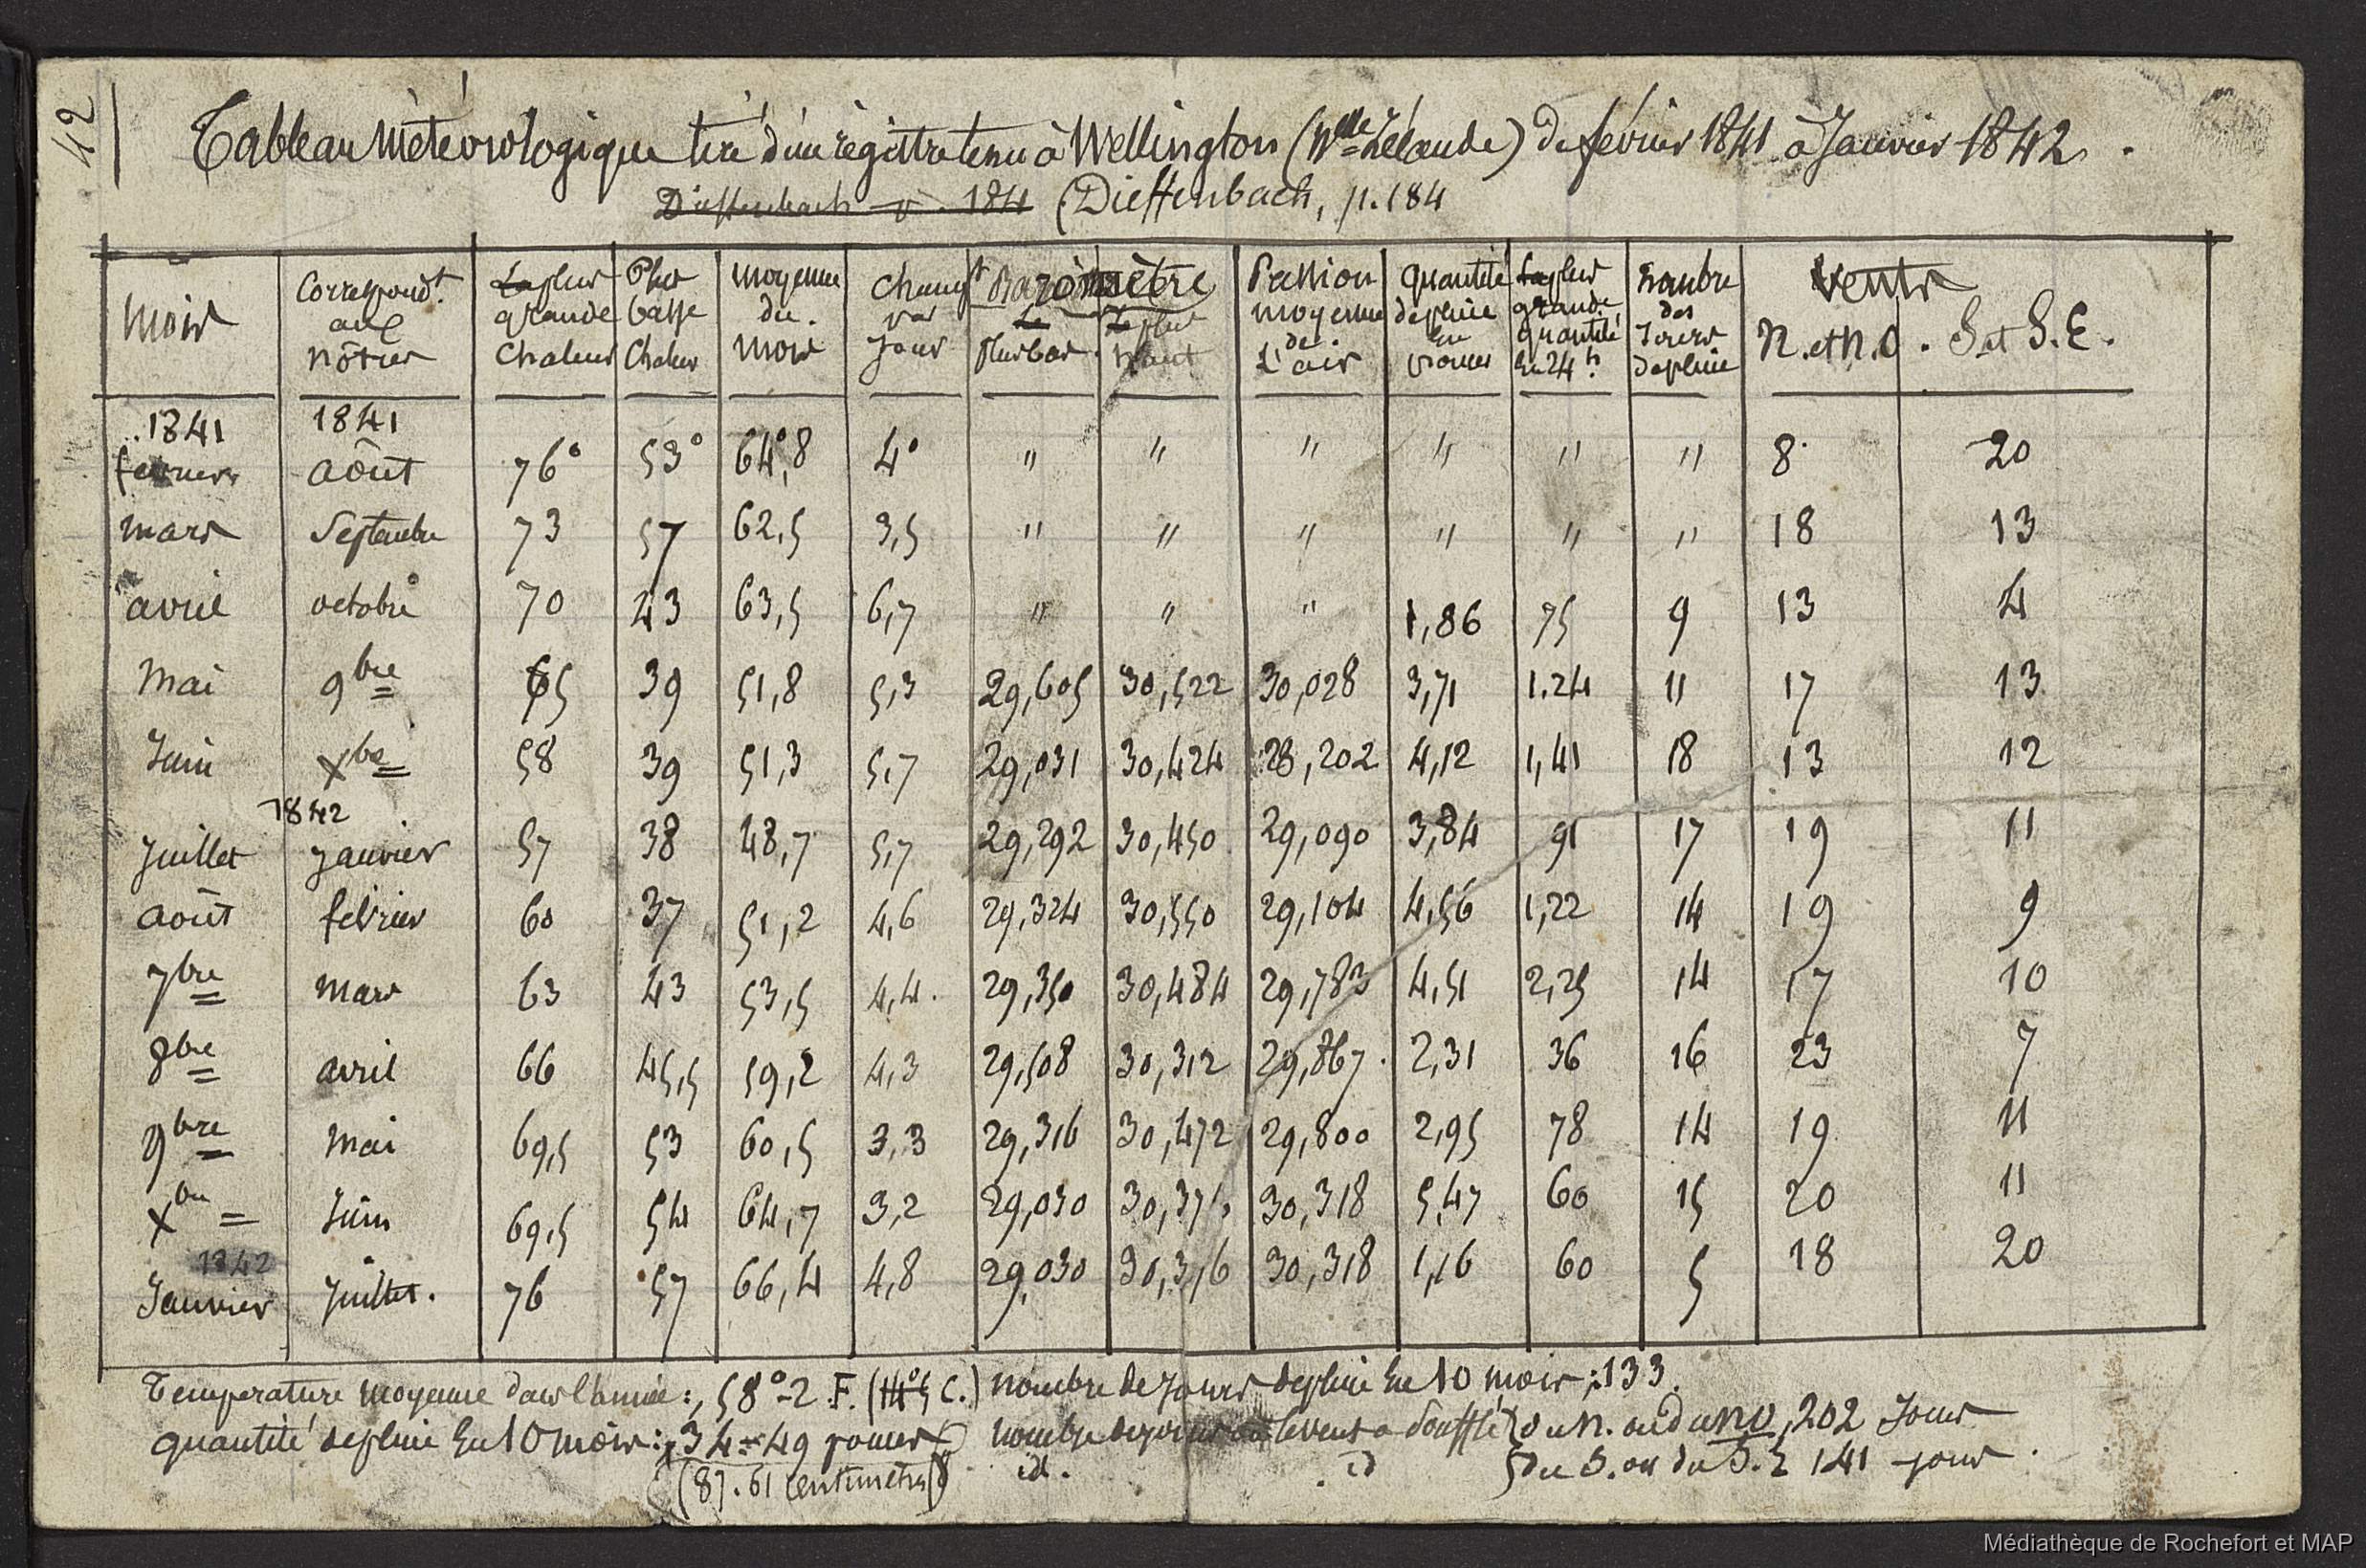 42
Tableau Météorologique tiré d'un régistre tenu à Wellington (Nlle Zélande) de février 1841 à Janvier 1842.
Dieffenbach p. 184 (Dieffenbach, p. 184
Mois Correspondt. aux nôtres La plus grande Chaleur Plus basse Chaleur moyenne du mois changt par jour Baromètre Le Plus bas Le plus haut Pression moyenne de L'air Quantité de pluie En pouces La plus grande quantité En 24 h. nombre des Jours de pluie Vents N. et N.O. S et S.E.
1841 1841
février Aôut 76° 53° 64°,8 4° " " " " " " 8 20
mars Septembre 73 57 62,5 3,5 " " " " " " 18 13
avril octobre 70 43 63,5 6,7 " " " 1,86 75 9 13 4
Mai 9bre 65 39 51,8 5,3 29,605 30,522 30,028 3,71 1.24 11 17 13
Juin Xbre 58 39 51,3 5,7 29,031 30,424 28,202 4,12 1,41 18 13 12
1842
Juillet Janvier 57 38 48,7 5,7 29,292 30,450 29,090 3,84 91 17 19 11
Août février 60 37 51,2 4,6 29,324 30,550 29,104 4,56 1,22 14 19 9
7bre Mars 63 43 53,5 4,4. 29,350 30,484 29,783 4,51 2,25 14 17 10
8bre avril 66 45,5 59,2 4,3 29,508 30,312 29,867. 2,31 36 16 23 7
9bre Mai 69,5 53 60,5 3,3 29,316 30,472 29,800 2,95 78 14 19 11
Xbre Juin 69,5 54 64,7 3,2 29,030 30,376 30,318 5,47 60 15 20 11
1842
Janvier Juillet. 76 57 66,4 4,8 29,030 30,316 30,318 1,16 60 5 18 20
Température moyenne dans l'année: 58°-2 F. (14°5 C.) nombre de Jours de pluie En 10 mois: 133.
quantité de pluie En 10 mois: 34=49 pouces nombre de jours où le vent a soufflé du N. ou du NO, 202 Jours
(87.61 centimètres) id. id du S. ou du S.E 141 jours
Médiathèque de Rochefort et MAP